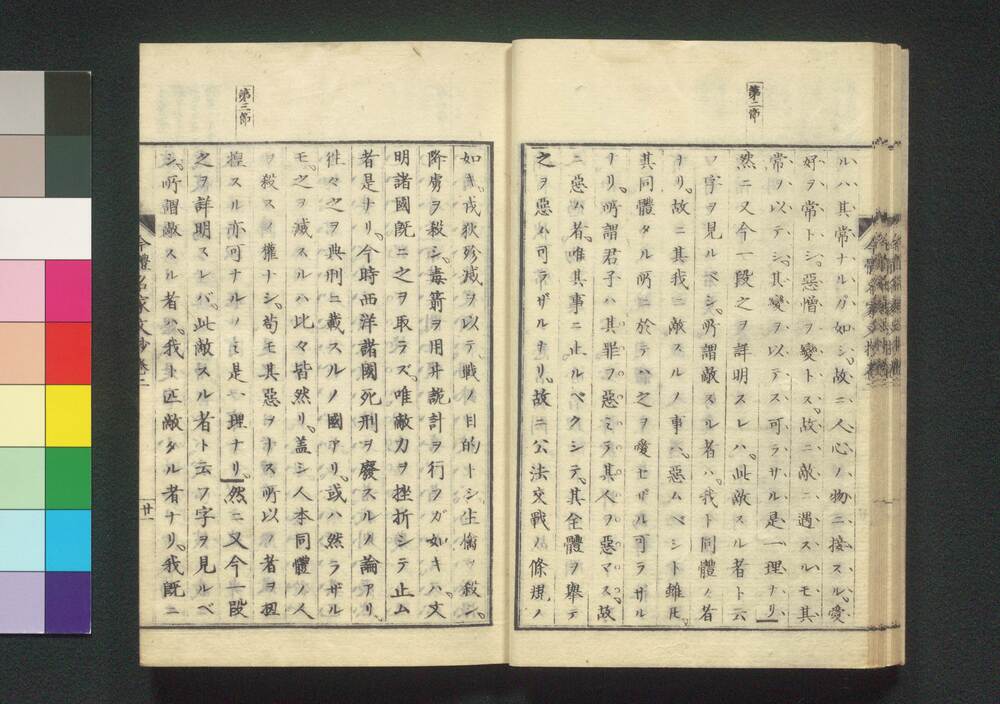 第二節
ルハ其常ナルガ如シ。故ニ人心ノ物ニ接スル、愛
好ヲ常トシ。惡憎ヲ變トス。故ニ敵ニ遇スルモ其
常ヲ以テシ。其變ヲ以テス可ラサル是一理ナリ
然ニ又今一段之ヲ詳明スレハ。此敵スル者ト云
フ字ヲ見ルベシ。所謂敵スル者ハ。我ト同體ノ者
ナリ。故ニ其我ニ敵スルノ事ハ。惡ムベシト雖𪜈。
其同體タル所ニ於テハ之ヲ愛セザル可ラザル
ナリ。所謂君子ハ其罪ヲ惡ミテ其人ヲ惡マス。故
ニ惡ム者。唯其事ニ止ルベクシテ。其全體ヲ舉テ
之ヲ惡ム可ラザルナリ。故ニ公法交戰ノ條規ノ
第三節
如キ。戎狄殄滅ヲ以テ戰ノ目的トシ生擒ヲ殺シ。
降虜ヲ殺シ。毒箭ヲ用井詭計ヲ行フガ如キハ。文
明諸國既ニ之ヲ取ラズ。唯敵力ヲ挫折シテ止ム
者是ナリ。今時西洋諸國死刑ヲ廢スルノ論アリ。
徃々之ヲ典刑ニ載スルノ國アリ。或ハ然ラザル
モ。之ヲ減スルハ比々皆然リ。蓋シ人本同體ノ人
ヲ殺スノ權ナシ。苟モ其惡ヲナス所以ノ者ヲ
スル亦可ナルノミ是一理ナリ。然ニ又今一段
之ヲ詳明スレバ。此敵スル者ト云フ字ヲ見ルベ
シ。所謂敵スル者ハ。我ト匹敵タル者ナリ。我既ニ
今體名家文抄卷二
廿一